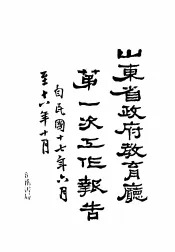 山東省政府教育廳
第一次工作報告
自民國十七年六月
至十八年十月